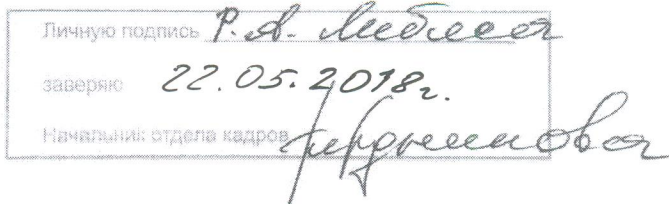 Личную подпись Р.А.
заверяю 22.05.2018г.
Начальник отдела кадров